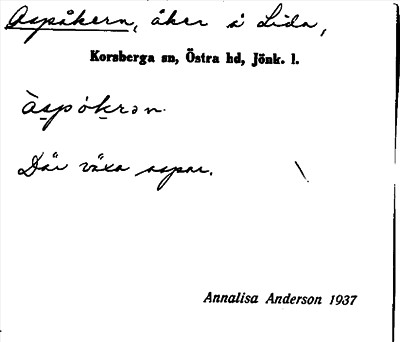 Aspåkern, åker å Lida,
Korsberga sn, Östra hd, Jönk. l.
àspòkrən.
Där växa aspar.
Annalisa Anderson 1937